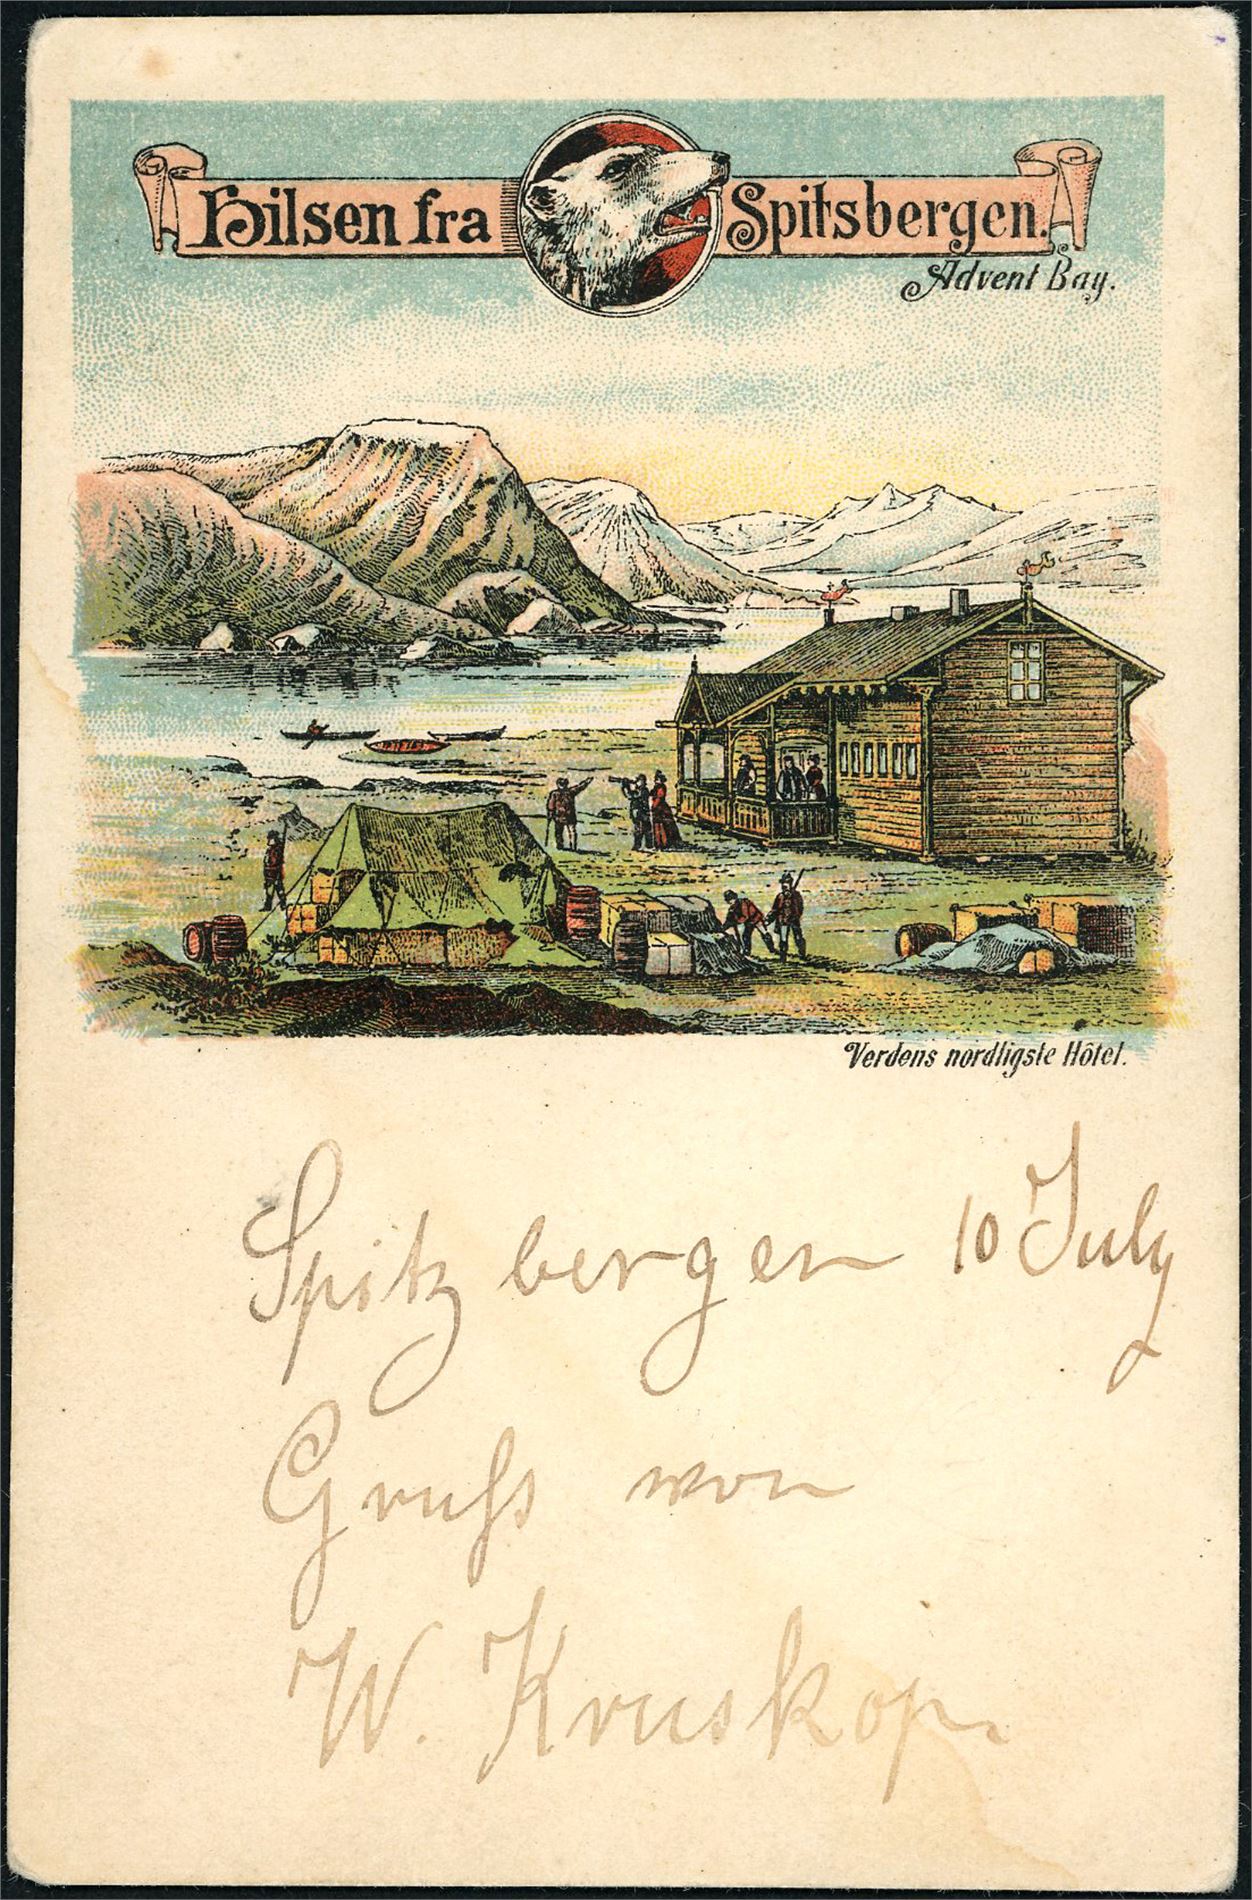 Hilsen fra Spitsbergen.
Advent Bay.
Verdens nordligste Hôtel.
Spitzbergen 10 July
Gruß von
W. Kruskop.